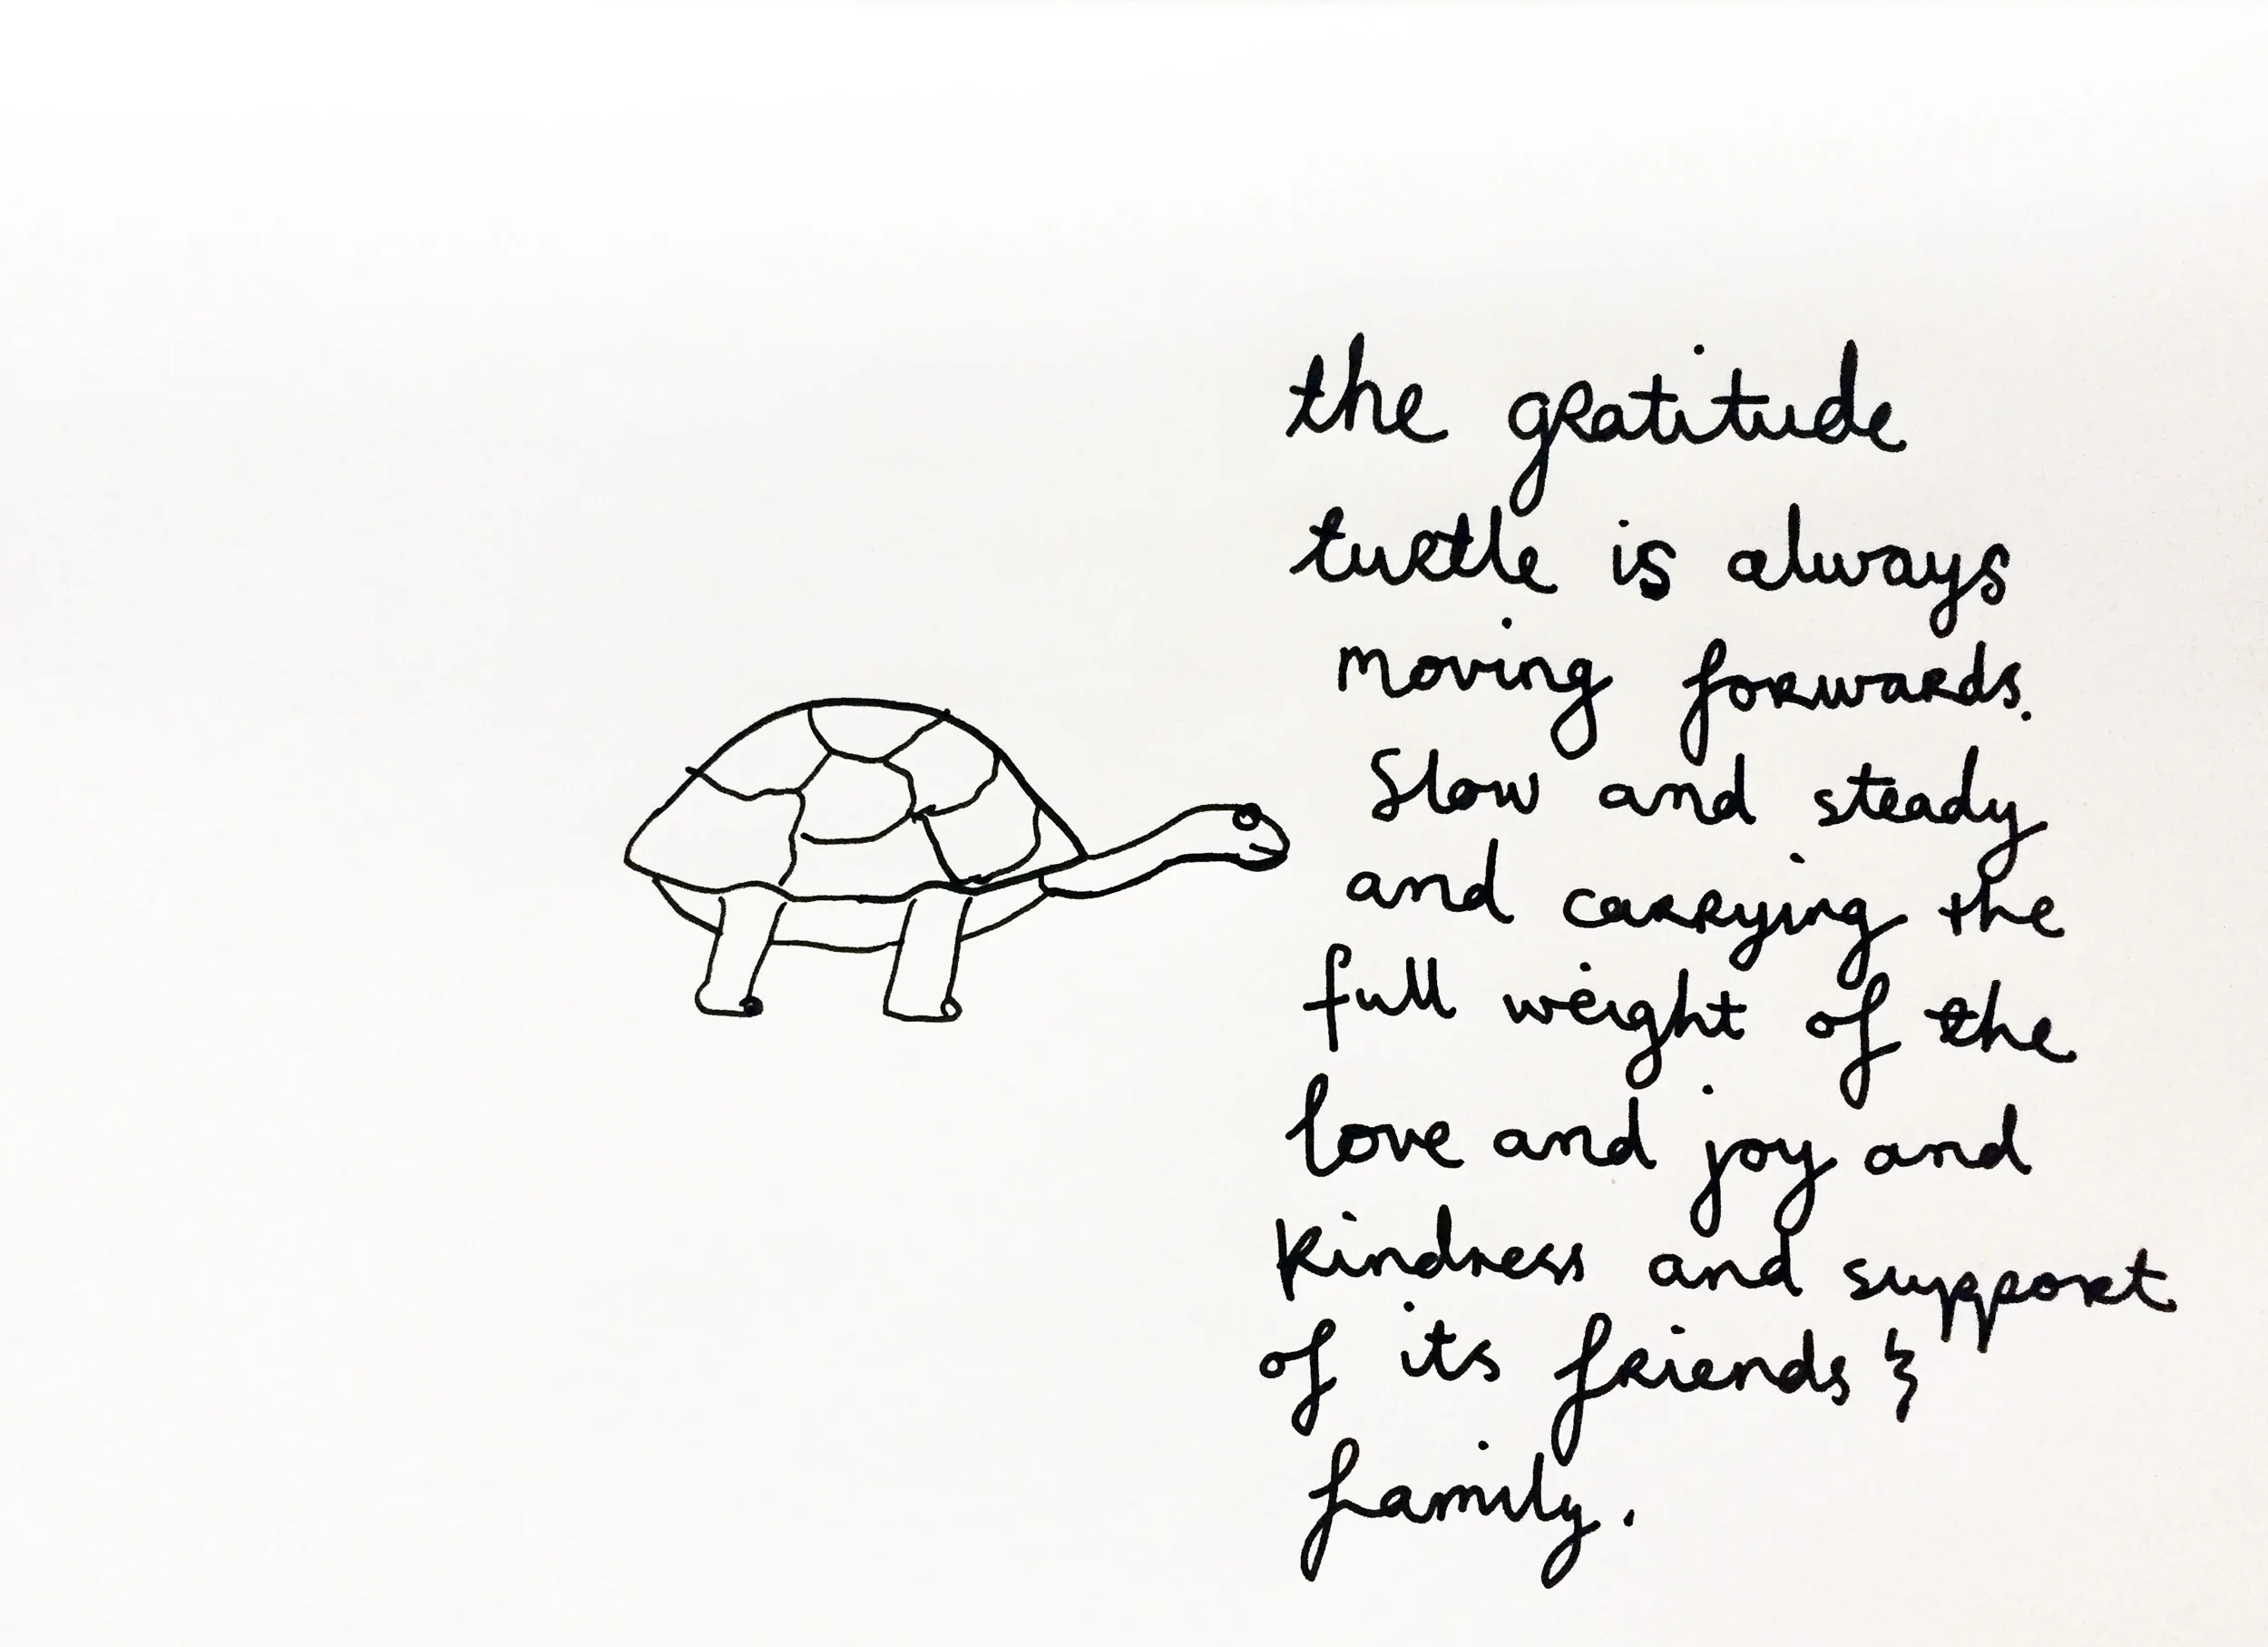 the gratitude
turtle is always
moving forwards.
Slow and steady
and carrying the
full weight of the
love and joy and
kindness and support
of its friends &
family.